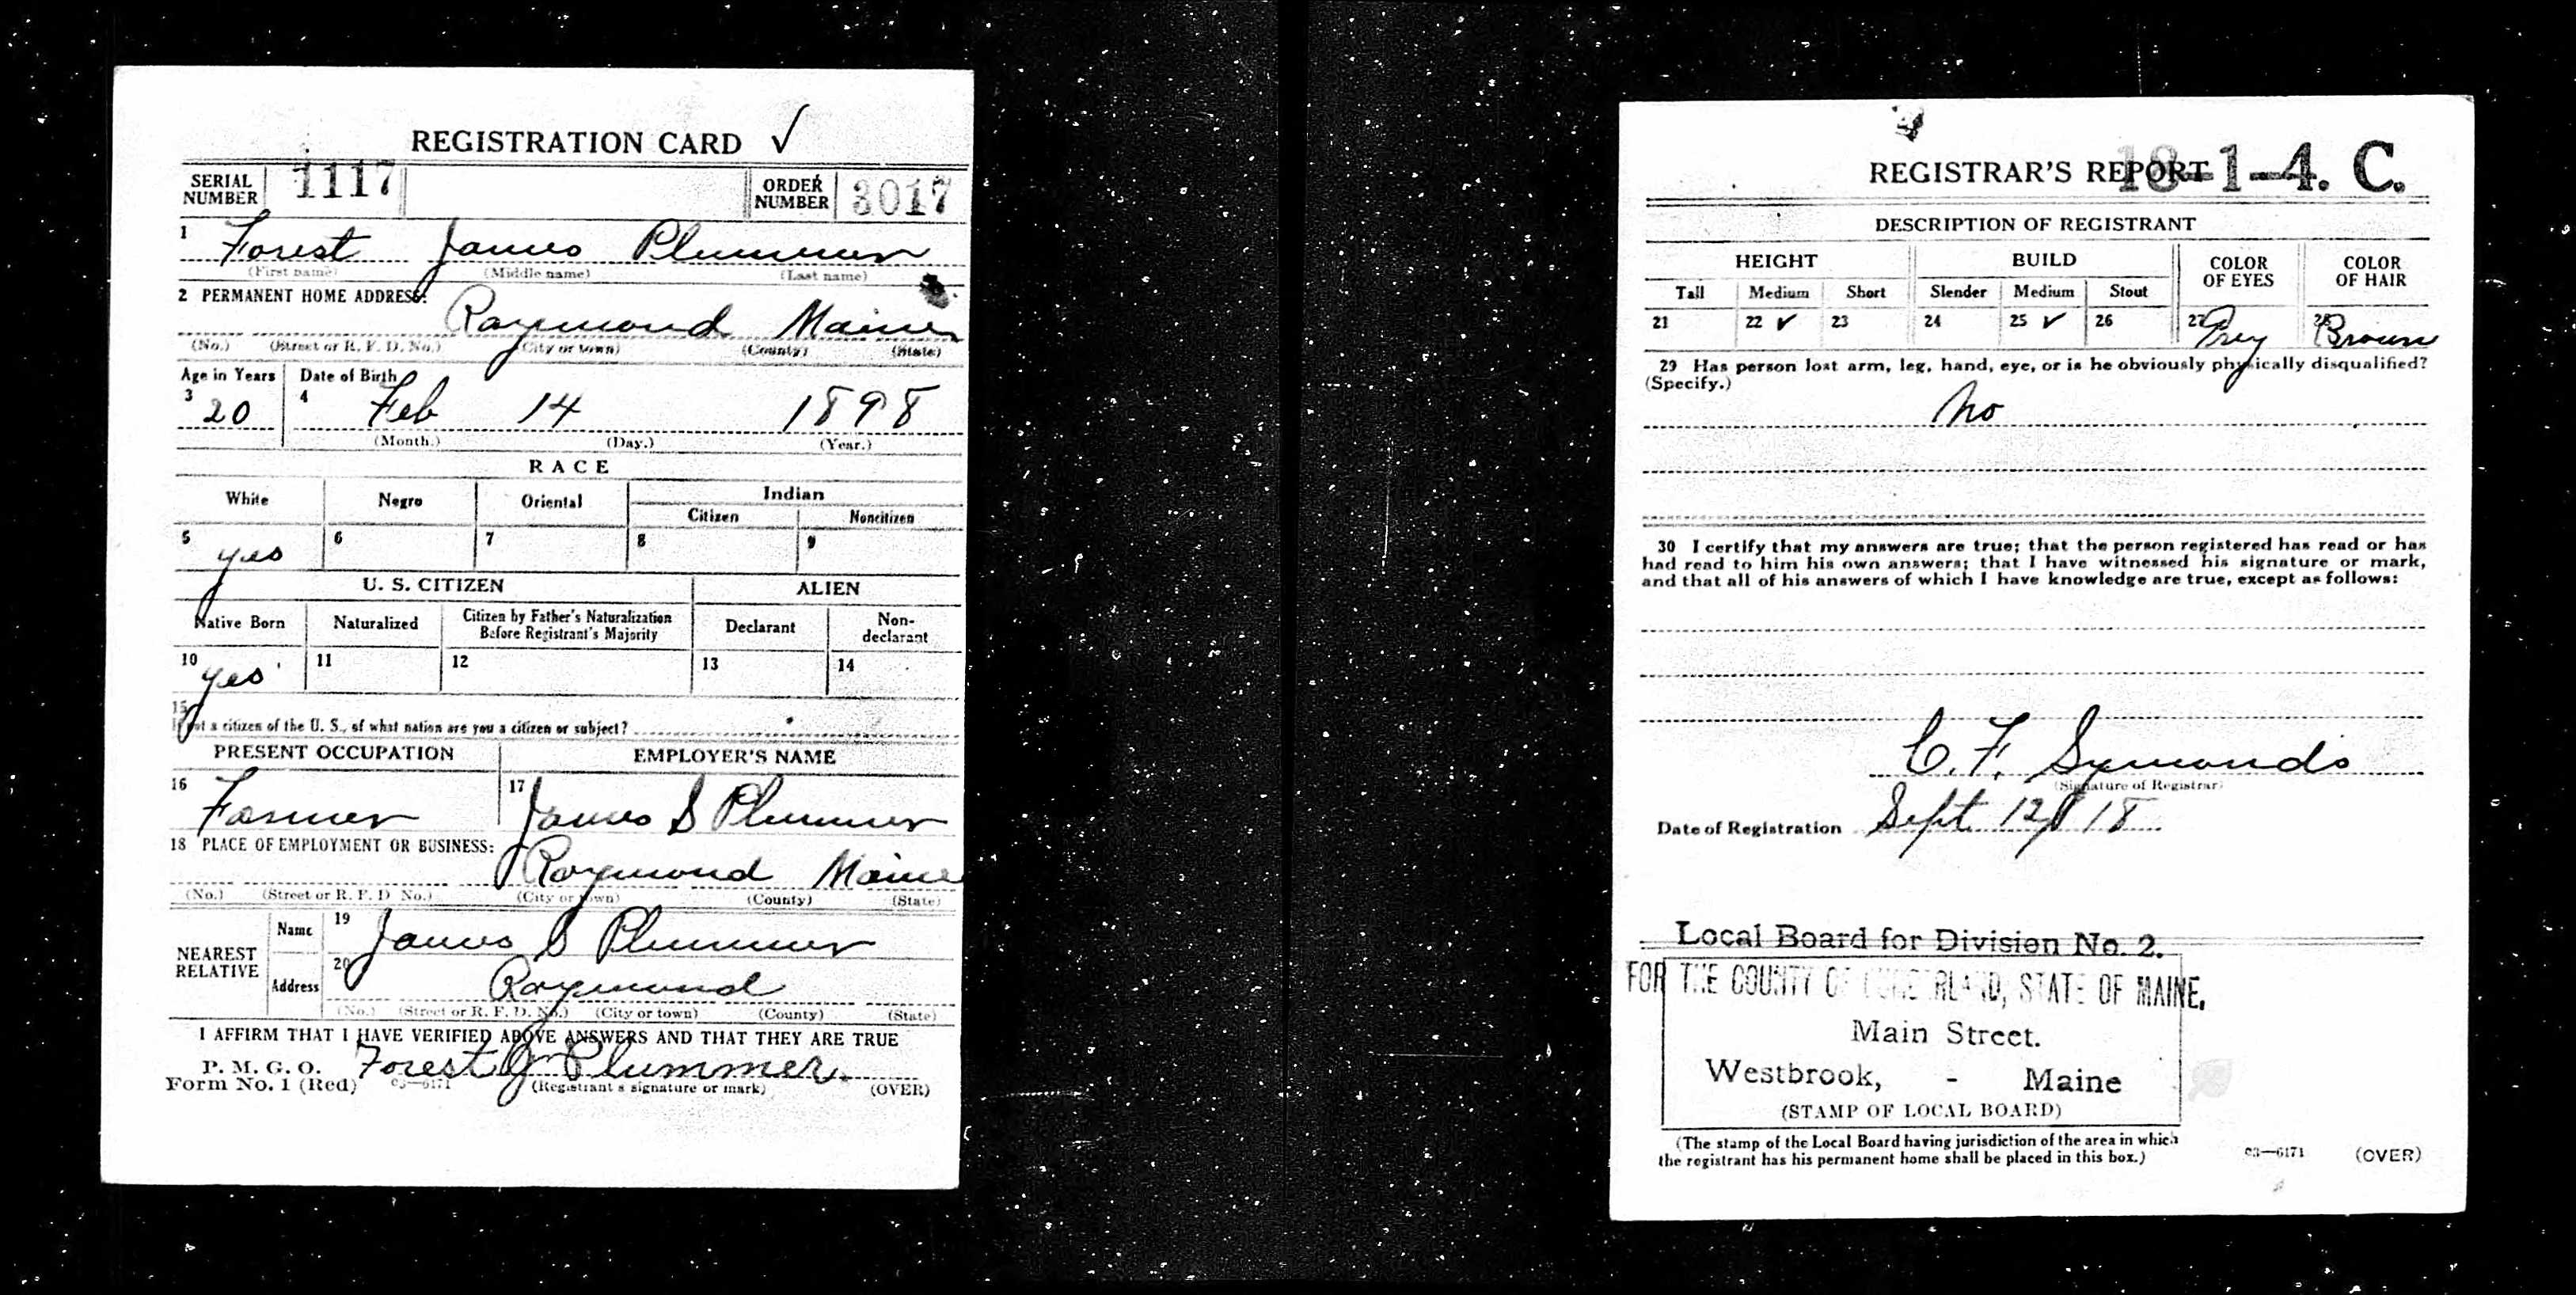 REGISTRATION CARD ✓
SERIAL NUMBER 1117 ORDER NUMBER 3017
1 Forest James Plummer
(First name) (Middle name) (Last name)
2 PERMANENT HOME ADDRESS:
Raymond Maine
(No.) (Street or R. F. D. No.) (City or town) (County) (State)
Age in Years Date of Birth
3 20 4 Feb 14 1898
(Month.) (Day.) (Year.)
RACE
White Negro Oriental Indian
Citizen Noncitizen
5 yes 6 7 8 9
U. S. CITIZEN ALIEN
Native Born Naturalized Citizen by Father's Naturalization Before Registrant's Majority Declarant Non-declarant
10 yes 11 12 13 14
15
If not a citizen of the U. S., of what nation are you a citizen or subject?
PRESENT OCCUPATION EMPLOYER'S NAME
16 Farmer 17 James S Plummer
18 PLACE OF EMPLOYMENT OR BUSINESS:
Raymond Maine
(No.) (Street or R. F. D. No.) (City or town) (County) (State)
NEAREST RELATIVE Name 19 James S Plummer
Address 20 Raymond
(No.) (Street or R. F. D. No.) (City or town) (County) (State)
I AFFIRM THAT I HAVE VERIFIED ABOVE ANSWERS AND THAT THEY ARE TRUE
P. M. G. O. Forest J Plummer.
Form No. 1 (Red) 03—6171 (Registrant's signature or mark) (OVER)
REGISTRAR'S REPORT 18-1-4. C.
DESCRIPTION OF REGISTRANT
HEIGHT BUILD COLOR OF EYES COLOR OF HAIR
Tall Medium Short Slender Medium Stout
21 22 ✓ 23 24 25 ✓ 26 27 Grey 28 Brown
29 Has person lost arm, leg, hand, eye, or is he obviously physically disqualified?
(Specify.)
No
30 I certify that my answers are true; that the person registered has read or has
had read to him his own answers; that I have witnessed his signature or mark,
and that all of his answers of which I have knowledge are true, except as follows:
C. F. Symonds
(Signature of Registrar)
Date of Registration Sept 12/18
Local Board for Division No. 2.
FOR THE COUNTY OF CUMBERLAND, STATE OF MAINE.
Main Street.
Westbrook, - Maine
(STAMP OF LOCAL BOARD)
(The stamp of the Local Board having jurisdiction of the area in which
the registrant has his permanent home shall be placed in this box.)
03—6171 (OVER)